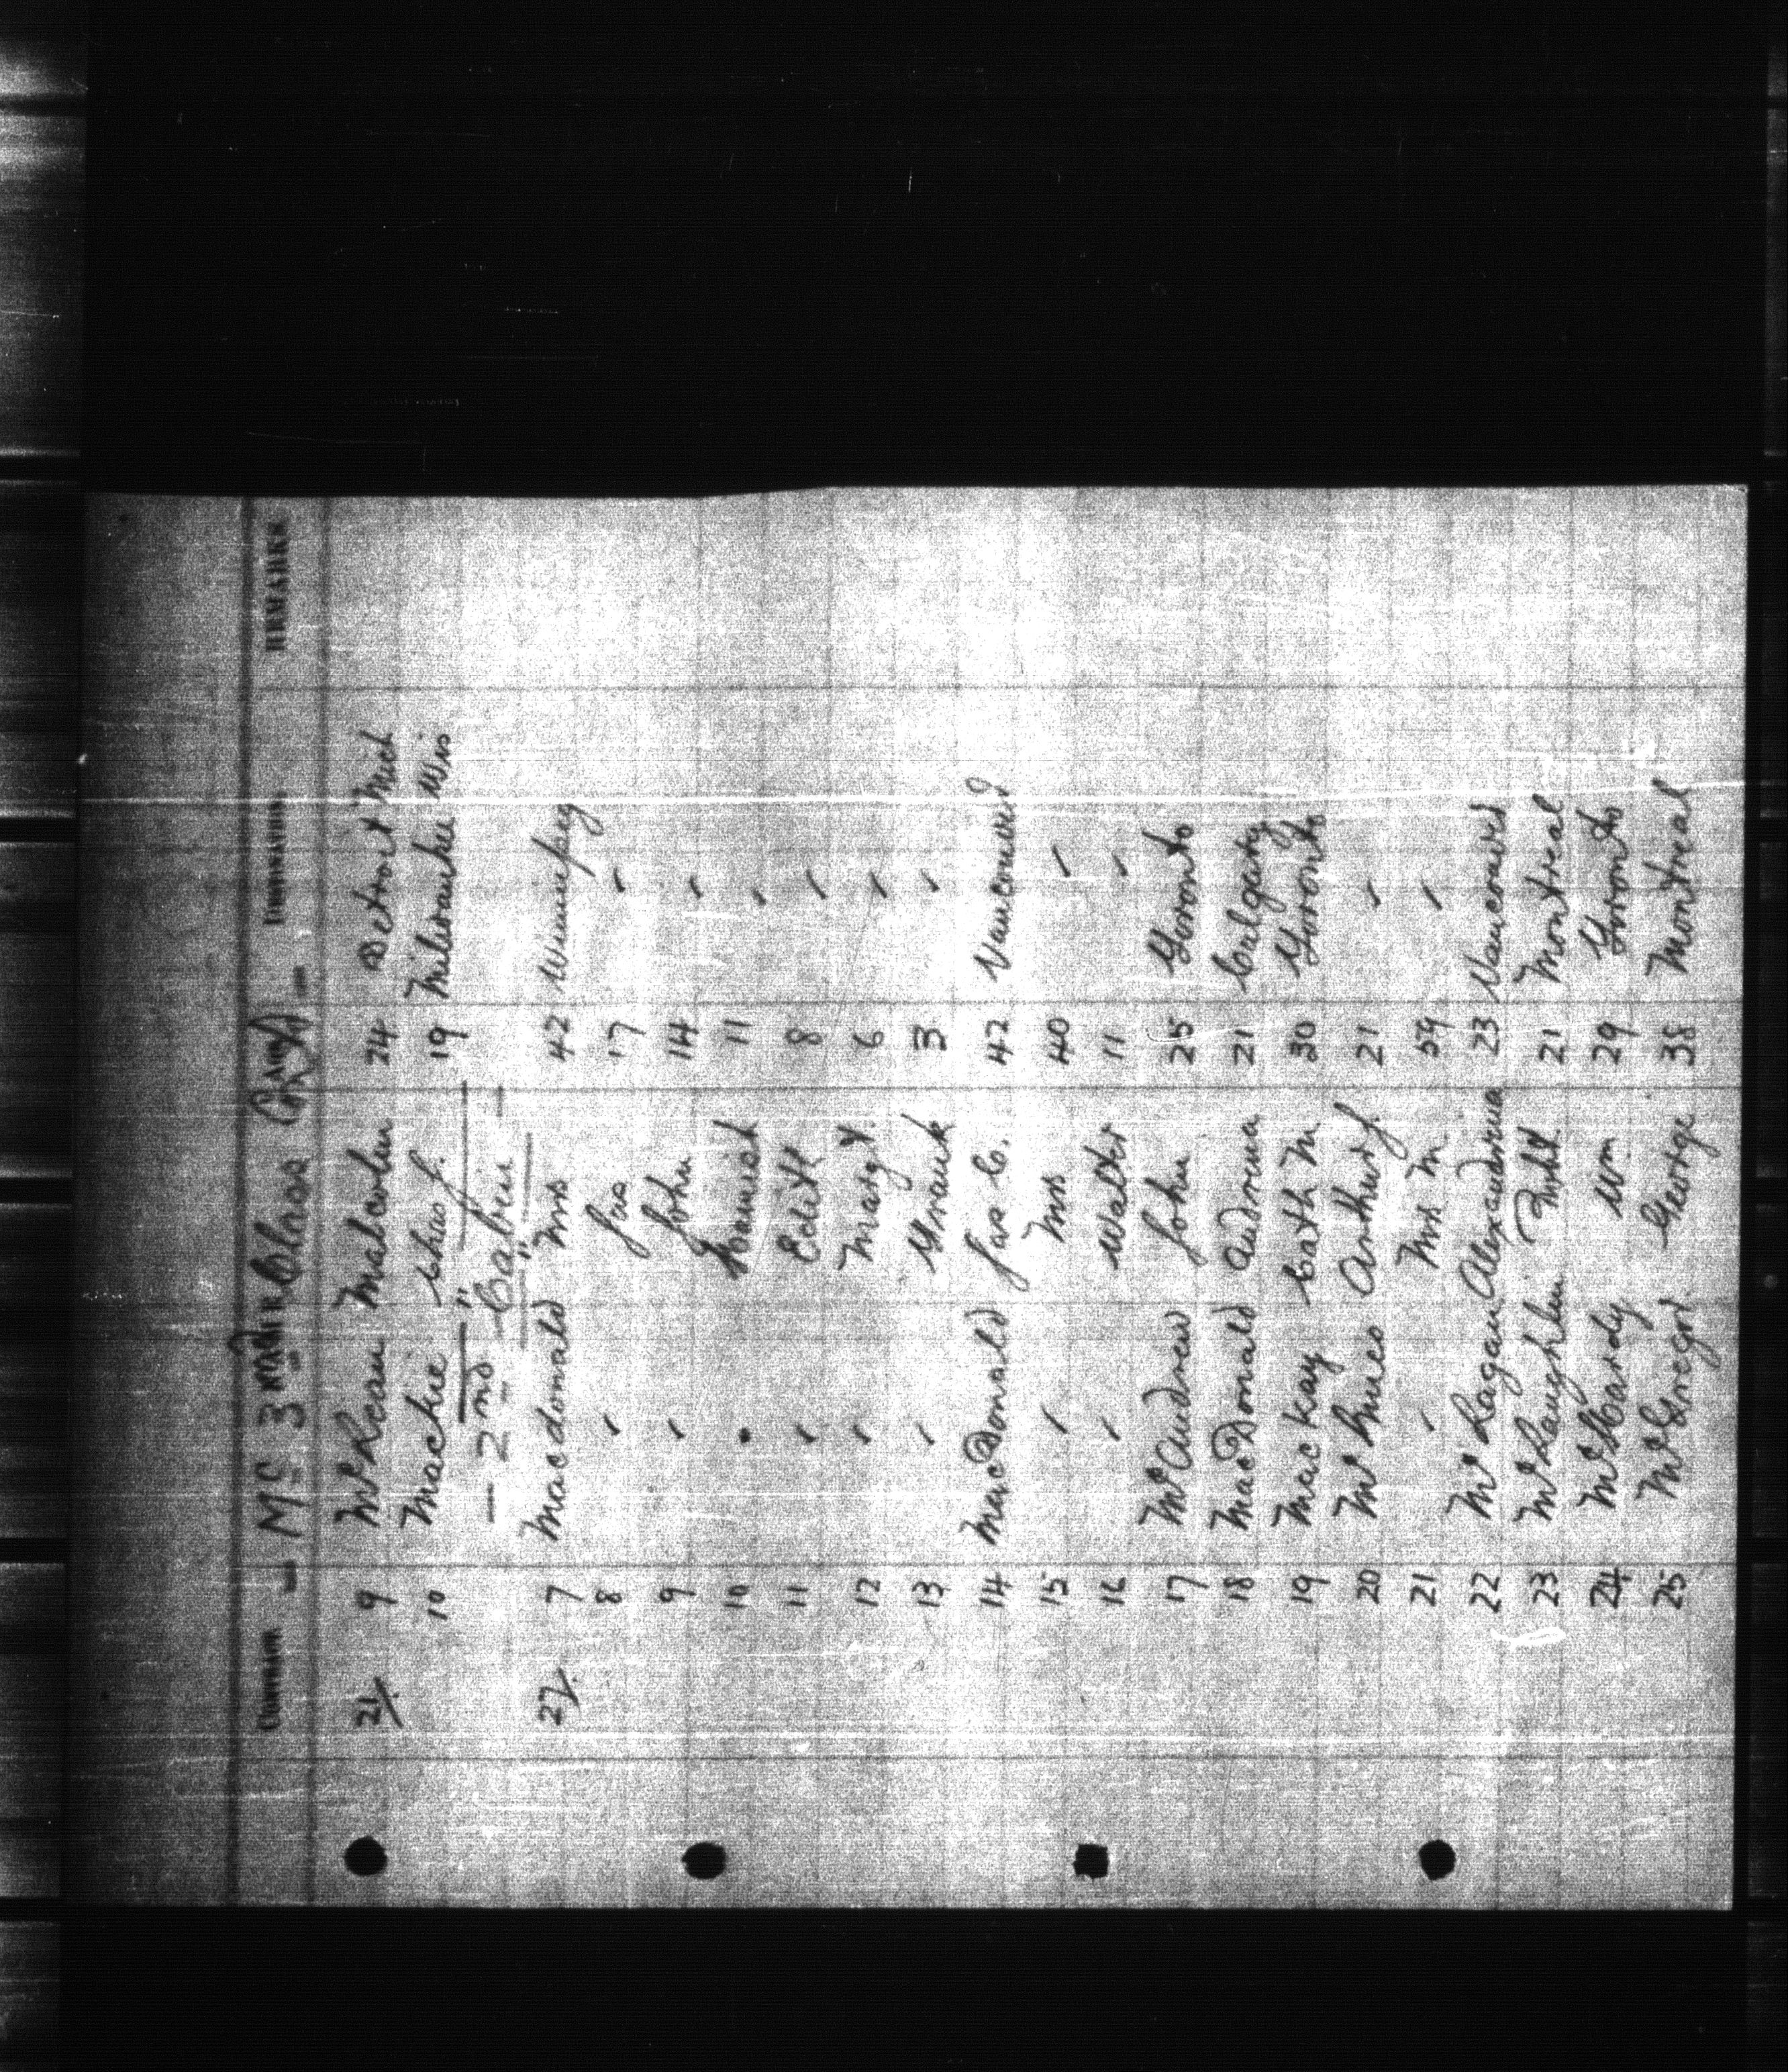 CONTRACT — Mc 3rd Class Contd — AGE DESTINATION REMARKS
21/ 9 McLean Malcolm 24 Detroit Mich
10 Mackie Chas J. 19 Milwaukee Wis
— 2nd " Cabin " —
27/ 7 Macdonald Mrs 42 Winnipeg
8 ✓ Jas 17 ✓
9 ✓ John 14 ✓
10 Hamish 11 ✓
11 ✓ Edith 8 ✓
12 ✓ Margt. 6 ✓
13 ✓ Frank 3 ✓
14 MacDonald Jas C. 42 Vancouver
15 ✓ Mrs 40 ✓
16 ✓ Walter 11 ✓
17 McAndrew John 25 Toronto
18 MacDonald Andrena 21 Calgary
19 MacKay Cath M 30 Toronto
20 McInnes Arthur J. 21 ✓
21 ✓ Mrs M. 59 ✓
22 McLagan Alexandrina 23 Vancouver
23 McLaughlin Robt. 21 Montreal
24 McHardy Wm 29 Toronto
25 McGregor George 38 Montreal